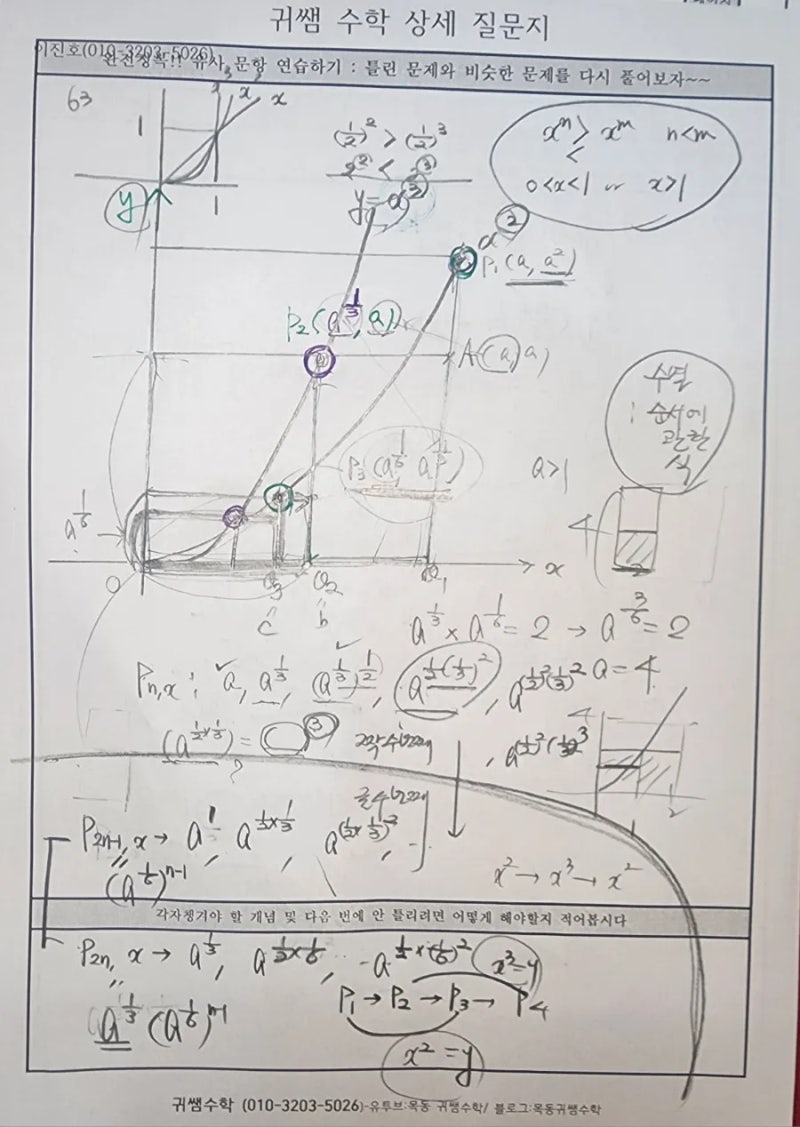 귀쌤 수학 상세 질문지
이진호(010-3203-5026)
완전정복!! 유사 문항 연습하기 : 틀린 문제와 비슷한 문제를 다시 풀어보자~~
63
x
1
1
(1/2)² > (1/2)³
2² < 2³
xⁿ > xᵐ n<m
<
0<x<1 or x>1
y
y=x³
x²
P₁(a, a²)
P₂(a^(1/3), a)
A(a, a)
수열
: 순서에
관한
식
a>1
a^(1/6)
4
2
O
Q₃
Q₂
Q₁
x
c
b
a^(1/3) × a^(1/6) = 2 → a^(3/6) = 2
a = 4
Pn,x : a, a^(1/3), (a^(1/3))^(1/2), a^(1/2(1/3)²), a^((1/2)²(1/3)²)
4
2
짝수번째
홀수번째
P2n-1, x → a¹, a^(1/2×1/3), a^(1/2×1/3)²,
(a^(1/6))^(n-1)
x² → x³ → x²
각자챙겨야 할 개념 및 다음 번에 안 틀리려면 어떻게 해야할지 적어봅시다
P2n, x → a^(1/3),
x³=y
P₁ → P₂ → P₃ → P₄
a^(1/3) (a^(1/6))^(n-1)
x² = y
귀쌤수학 (010-3203-5026)-유투브:목동 귀쌤수학/ 블로그:목동귀쌤수학